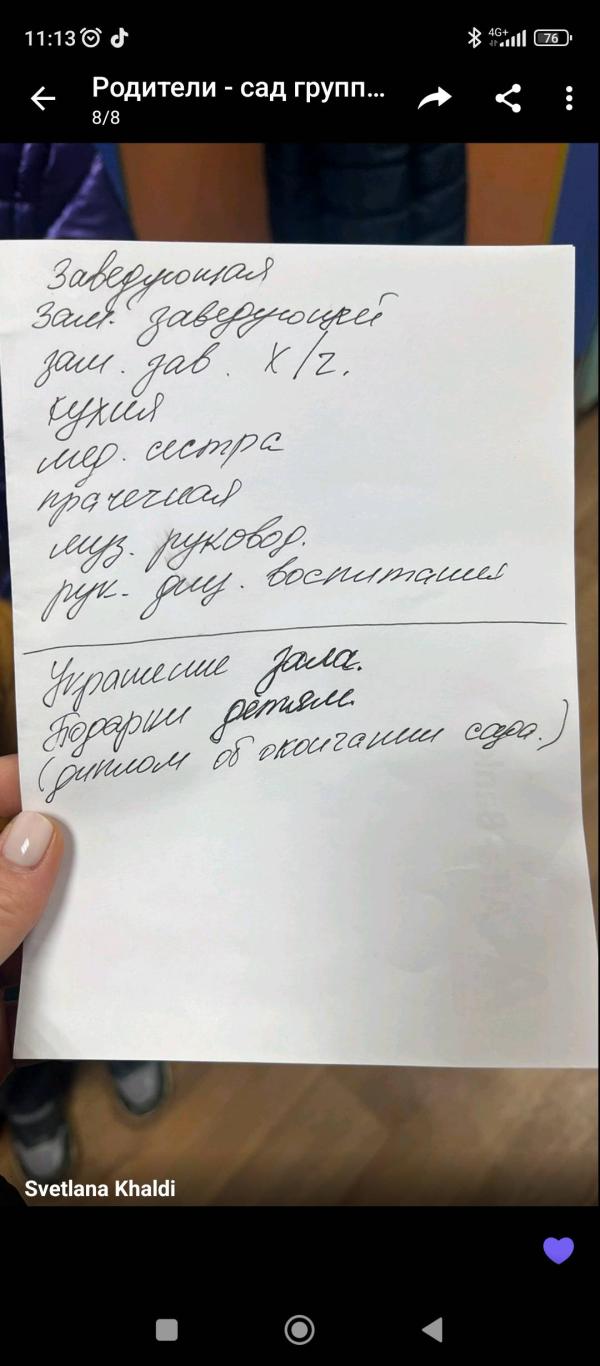 11:13
4G+
76
Родители - сад групп...
8/8
Заведующая
Зам. заведующей
зам. зав. х/ч.
кухня
мед. сестра
прачечная
муз. руковод.
рук. физ. воспитания
Украшение зала.
Подарки детям.
(диплом об окончании сада.)
Svetlana Khaldi